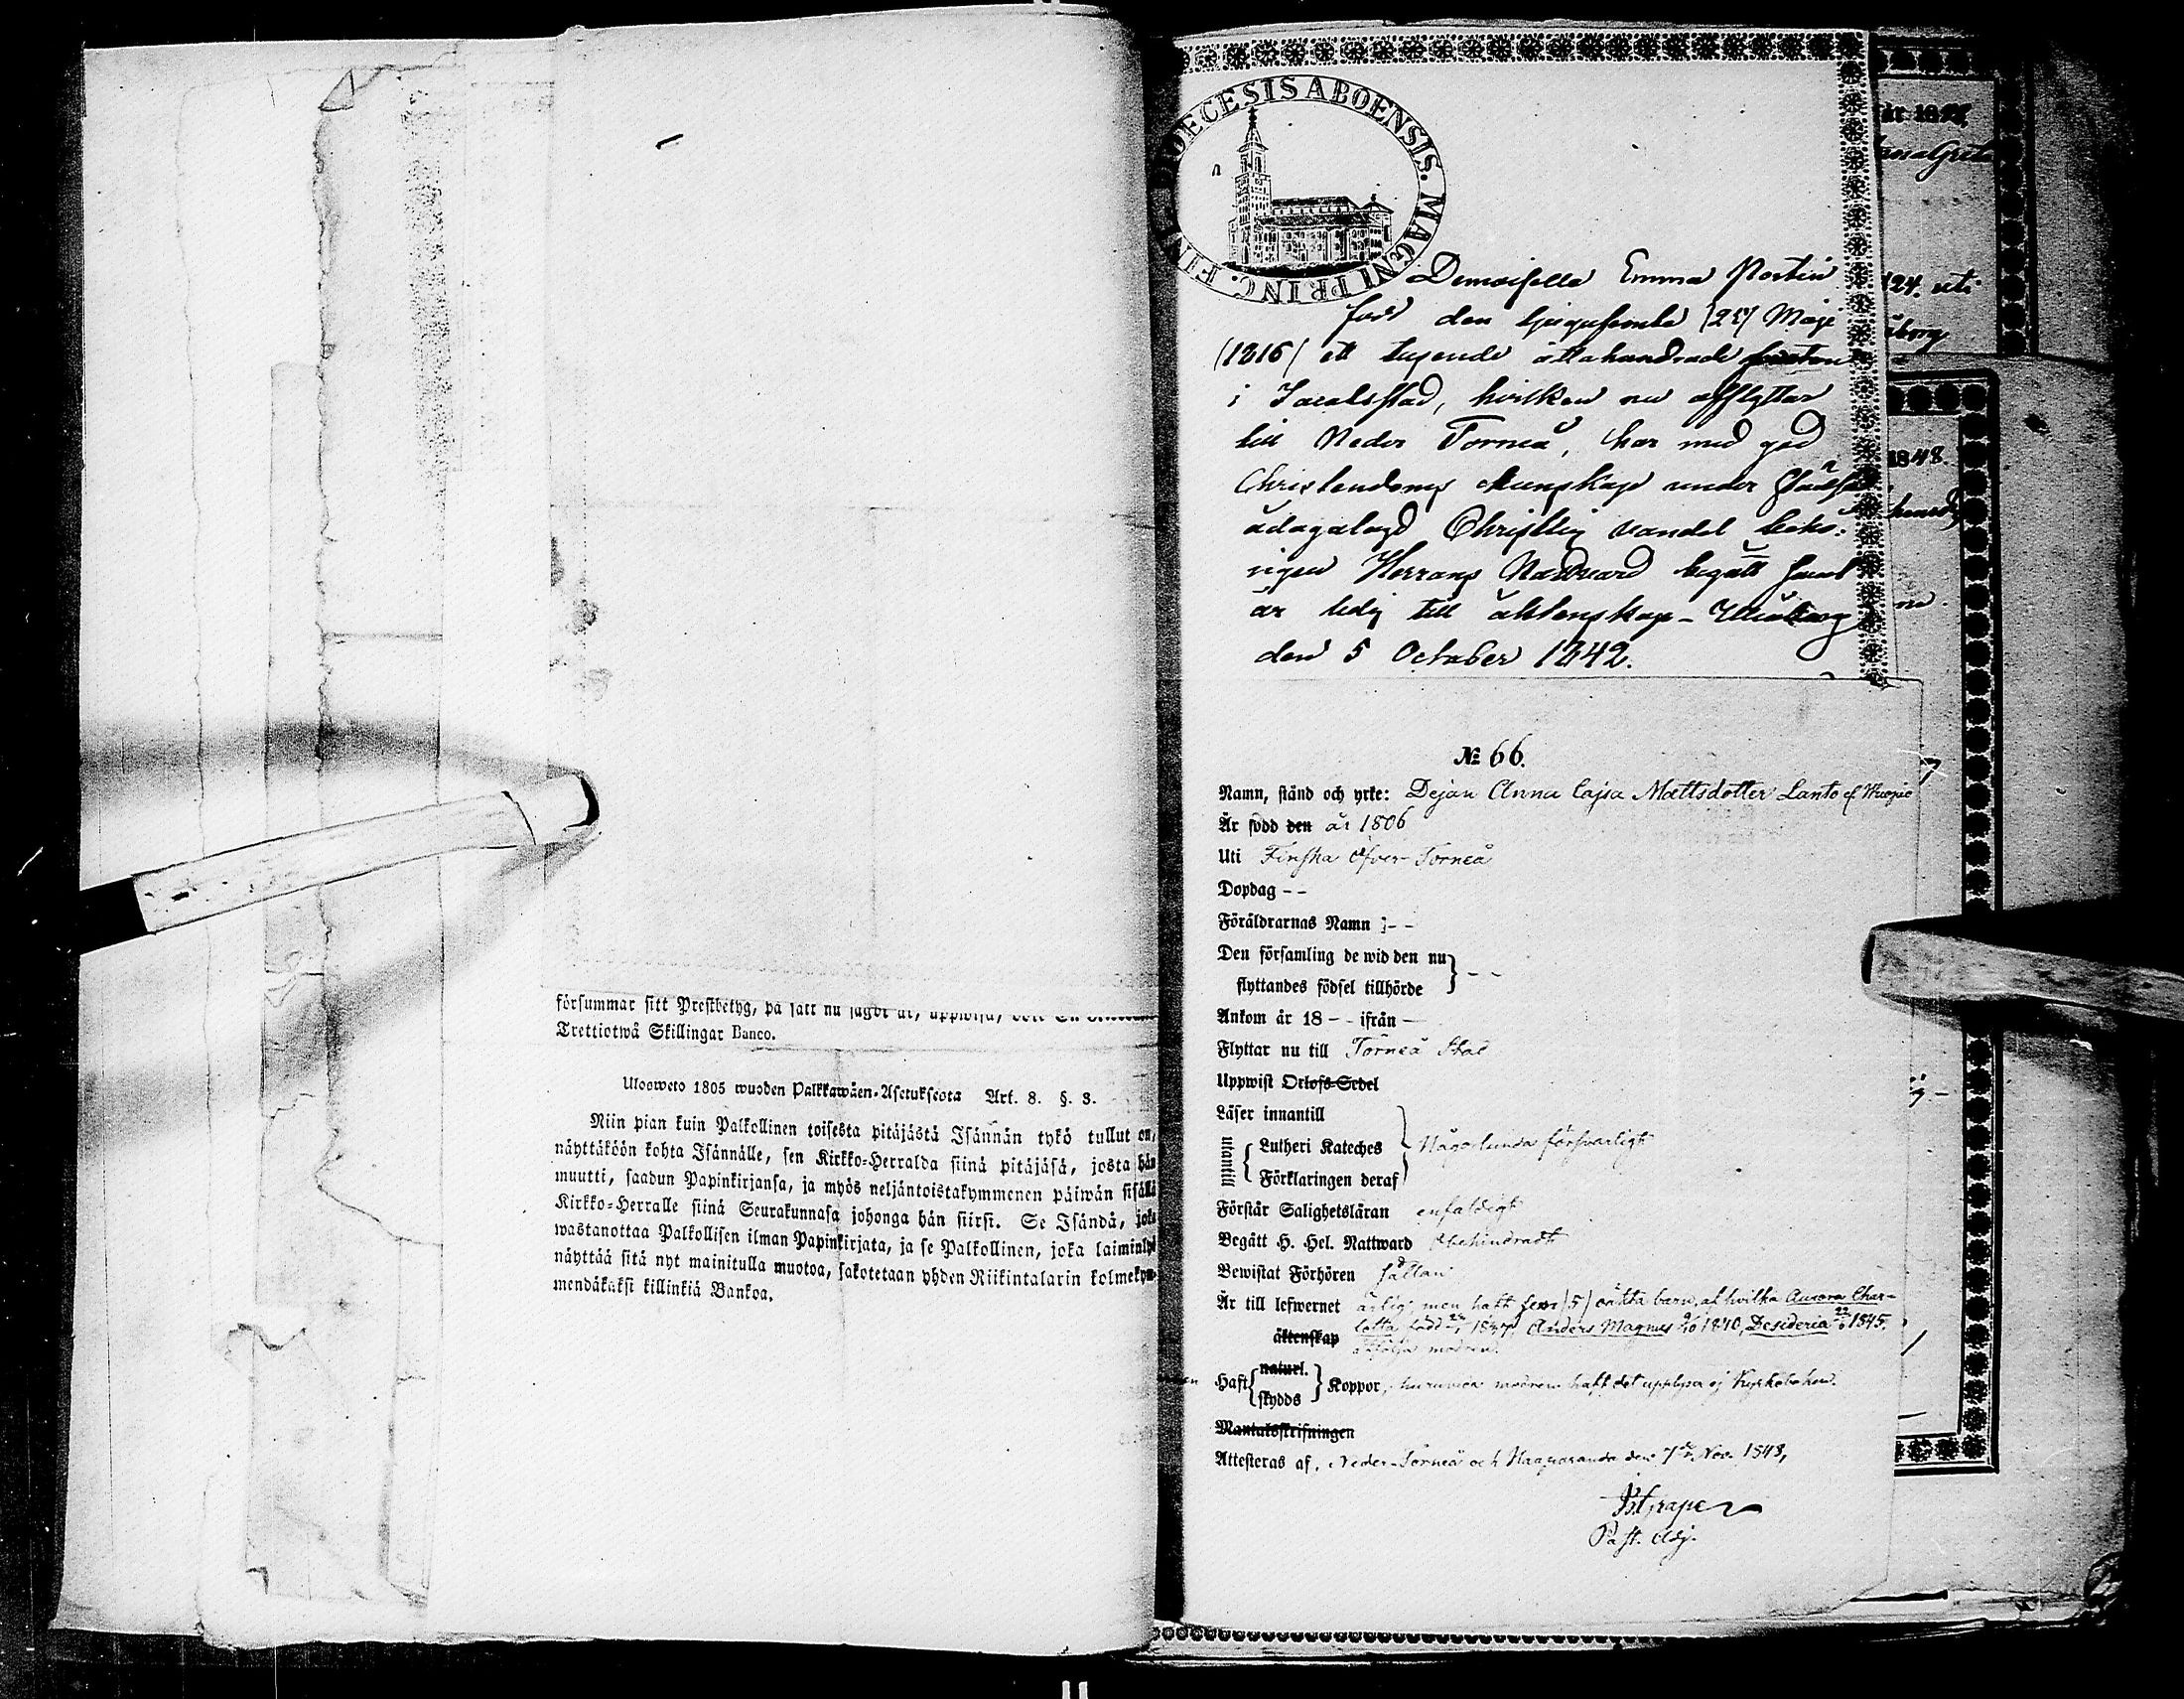 försummar sitt Prestbetyg, på sätt nu sagdt är, uppwisa,
Trettiotwå Skillingar Banco.
Ulosweto 1805 wuoden Palkkawäen-Asetuksesta Art. 8. §. 3.
Niin pian kuin Palkollinen toisesta pitäjästä Isännän tykö tullut on,
näyttäköön kohta Isännälle, sen Kirkko-Herralda siinä pitäjäsä, josta hän
muutti, saadun Papinkirjansa, ja myös neljäntoistakymmenen päiwän sisällä
Kirkko-Herralle siinä Seurakunnasa johonga hän siirsi. Se Isändä, joka
wastanottaa Palkollisen ilman Papinkirjata, ja se Palkollinen, joka laiminlyö
näyttää sitä nyt mainitulla muotoa, sakotetaan yhden Riikintalarin kolmekym-
mendäkaksi killinkiä Bankoa.
DIOECESIS ABOENSIS. MAGNI PRINC. FIN
Demoiselle Emma Portin
född den tjugufemte (25) Maji
(1816) ett tusende åttahundrade sexton
i Jacobsstad, hvilken nu afflyttar
till Neder Torneå, har med god
Christendoms kunskap under
ådagalagd Christlig vandel beho-
rigen Herrans Nattvard begått samt
är ledig till äktenskap - Uleåborg
den 5 October 1842.
№ 66.
Namn, stånd och yrke: Dejan Anna Cajsa Mattsdotter Lanto
Är född den år 1806
Uti Finska Öfver-Torneå
Dopdag - -
Föräldrarnas Namn - -
Den församling de wid den nu
flyttandes födsel tillhörde } - -
Ankom år 18 - - ifrån -
Flyttar nu till Torneå Stad
Uppwist Orlofs-Sedel
Läser innantill
utantill { Lutheri Kateches } Någorlunda försvarligt
Förklaringen deraf
Förstår Salighetsläran enfaldigt
Begått H. Hel. Nattward obehindradt
Bewistat Förhören sällan
Är till lefwernet ärlig, men haft fem (5) oäkta barn, af hvilka Aurora Char-
äktenskap lotta född 1837, Anders Magnus 1840, Desideria 1845.
åtfölja modren.
Haft { naturl. skydds } Koppor, huruvida modren haft det upplyser ej Kyrkoboken.
Mantalsskrifningen
Attesteras af, Neder-Torneå och Haaparanda den 7de Nov. 1848,
Grape
Past. Adj.
år 18
124. uti
1848.